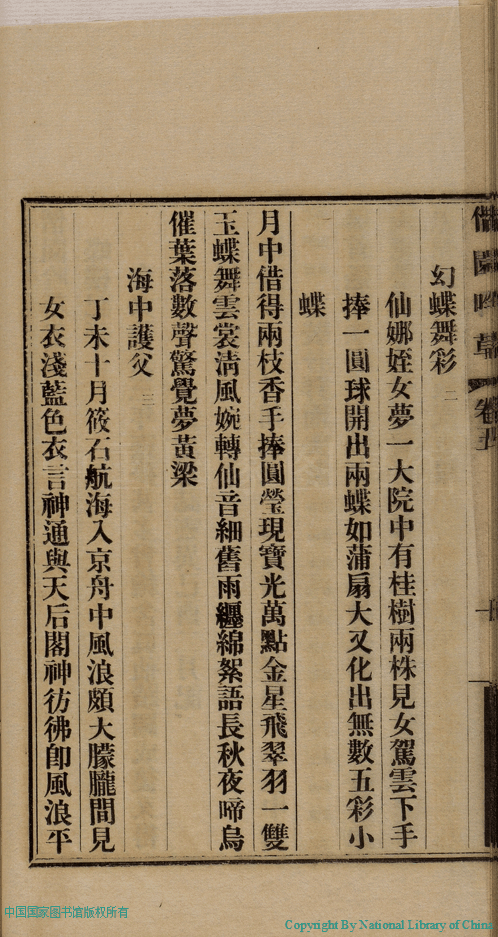 幻蝶舞彩 二
仙娜姪女夢一大院中有桂樹兩株見女駕雲下手
捧一圓球開出兩蝶如蒲扇大又化出無數五彩小
蝶
月中借得兩枝香手捧圓瑩現寶光萬點金星飛翠羽一雙
玉蝶舞雲裳清風婉轉仙音細舊雨纏綿絮語長秋夜啼烏
催葉落數聲驚覺夢黃梁
海中護父 三
丁未十月筱石航海入京舟中風浪頗大朦朧間見
女衣淺藍色衣言神通與天后閣神彷彿卽風浪平
中国国家图书馆版权所有
Copyright By National Library of China